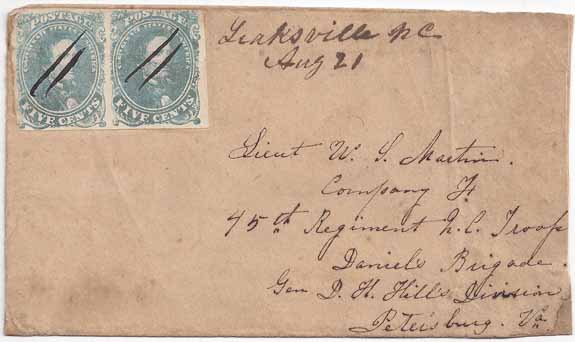 POSTAGE POSTAGE
CONFEDERATE STATES OF AMERICA
FIVE CENTS FIVE CENTS
Leaksville NC
Aug 21
Lieut W. S. Martin.
Company
45th Regiment N.C. Troops
Daniel's Brigade.
Gen D. H. Hill's Division
Petersburg. Va.